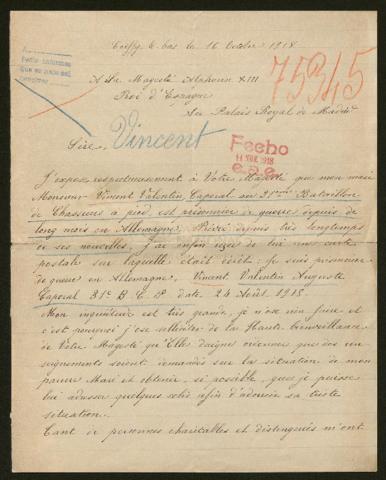 le bas le 16 Octobre 1918
A Sa Majesté Alphonse XIII
Roi d'Espagne
Au Palais Royal de Madrid
75315
Sire,
Vincent
Fecho
1918
J'expose respectueusement à Votre Majesté que mon mari
Monsieur Vincent Valentin, Caporal au 31eme Bataillon
de Chasseurs à pied, est prisonnier de guerre depuis de
long mois en Allemagne. Privée depuis très longtemps
de ses nouvelles, J'ai enfin reçu de lui une carte
postale sur laquelle était écrit: Je suis prisonnier
de guerre en Allemagne, Vincent Valentin Auguste
Caporal 31e B. C. P. date 24 Août 1918.
Mon inquiétude est très grande, je n'ose rien faire et
c'est pourquoi j'ose solliciter de la Haute bienveillance
de Votre Majesté qu'Elle daigne ordonner que des ren-
seignements soient demandés sur la situation de mon
pauvre Mari et obtenir, si possible, que je puisse
lui adresser quelques colis afin d'adoucir sa triste
situation.
Tant de personnes charitables et distinguées m'ont